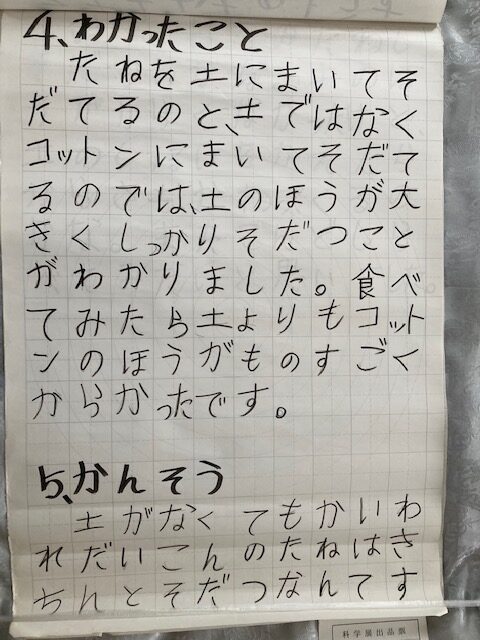 4、わかったこと
たねを土にまいてそ
だてるのと、土ではなく
コットンにまいてそだて
るのでは、土のほうが大
きくしっかりそだつこと
がわかりました。食べ
てみたら土よりもコット
ンのほうがものすごく
からかったです。
5、かんそう
土がなくてもかいわ
れだいこんのたねはき
ちんとそだつなんてす
科学展出品票